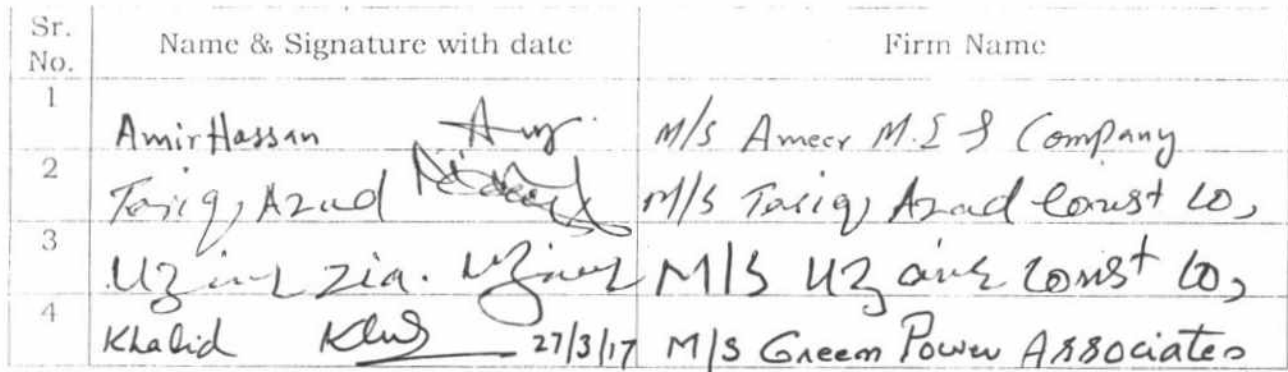 Sr. No. Name & Signature with date Firm Name
1 Amir Hassan M/s Ameer M.E S Company
2 Tariq, Azad M/s Tariq, Azad Const Co,
3 Uzair Zia. M/S Uzair Const Co,
4 Khalid 27/3/17 M/s Green Power Associates